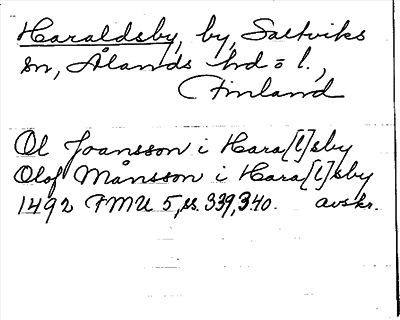 Haraldsby, by, Saltviks
sn, Ålands hd o l.,
Finland
Ol Joansson i Hara[l]sby
Olof Månsson i Hara[l]sby
1492 FMU 5, ss. 339, 340. avskr.